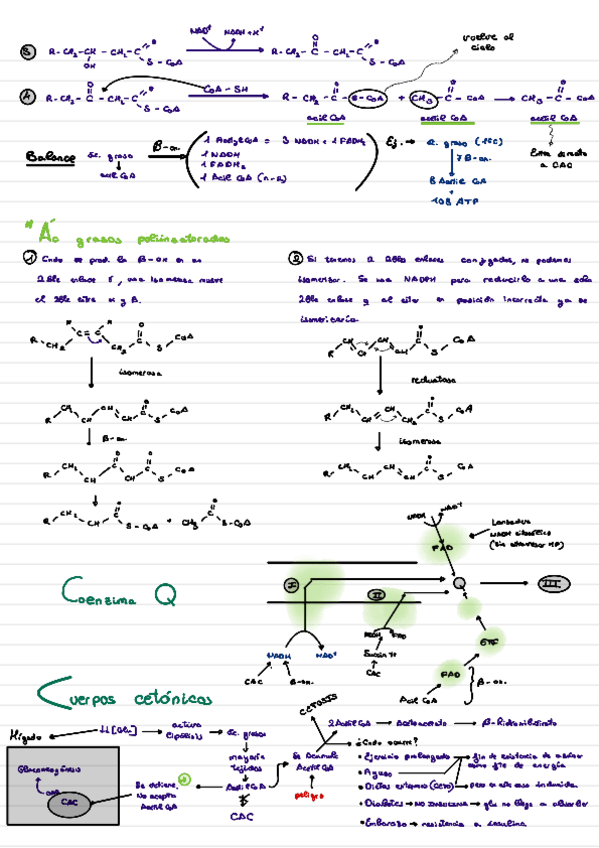 3 R-CH2-CH-CH2-C S-CoA
OH
O
NAD+ NADH+H+
R-CH2-C-CH2-C S-CoA
vuelve al
ciclo
4 R-CH2-C-CH2-C S-CoA
CoA-SH
R-CH2-C S-CoA + CH3-C CoA → CH3-C CoA
acil CoA
acetil CoA
acetil CoA
Entra directo
a CAC
Balance
ác. graso
acil CoA
β-ox.
1 Acetyl CoA = 3 NADH + 1 FADH2
1 NADH
1 FADH2
1 Acil CoA (n-2)
Ej. → ác. graso (16C)
7 β-ox.
8 Acetil CoA
+
108 ATP
* Ác grasos poliinsaturados
1 Cndo se prod. la β-ox en un
2ble enlace, una isomerasa mueve
el 2ble entre α y β.
2 Si tenemos 2 2bles enlaces conjugados, no podemos
isomerizar. Se usa NADPH para reducirlo a una sola
2ble enlace y al estar en posición incorrecta ya se
isomerizaría
isomerasa
reductasa
β-ox.
isomerasa
Coenzima Q
I
II
III
Q
NADH NAD+
CAC β-ox.
FADH FAD
Succinato
CAC
NADH NAD+
FAD
Lanzadera
NADH citosólico
ETF
FAD
Acil CoA
β-ox.
Cuerpos cetónicos
CETOSIS
2 Acetil CoA → Acetoacetato → β-Hidroxibutirato
Hígado
↓↓ [Glu]
activa
lipólisis
ác. grasos
mayoría
tejidos
Acetil CoA
CAC
Se acumula
Acetil CoA
peligro
Se detiene.
No acepta
Acetil CoA
Gluconeogénesis
OAA
CAC
¿Cndo ocurre?
• Ejercicio prolongado
• Ayuno
como fte de energía
• Dietas extremas (CETO)
pero en este caso inducida.
• Diabetes → NO INSULINA → glu no llega a absorber
• Embarazo → resistencia a insulina